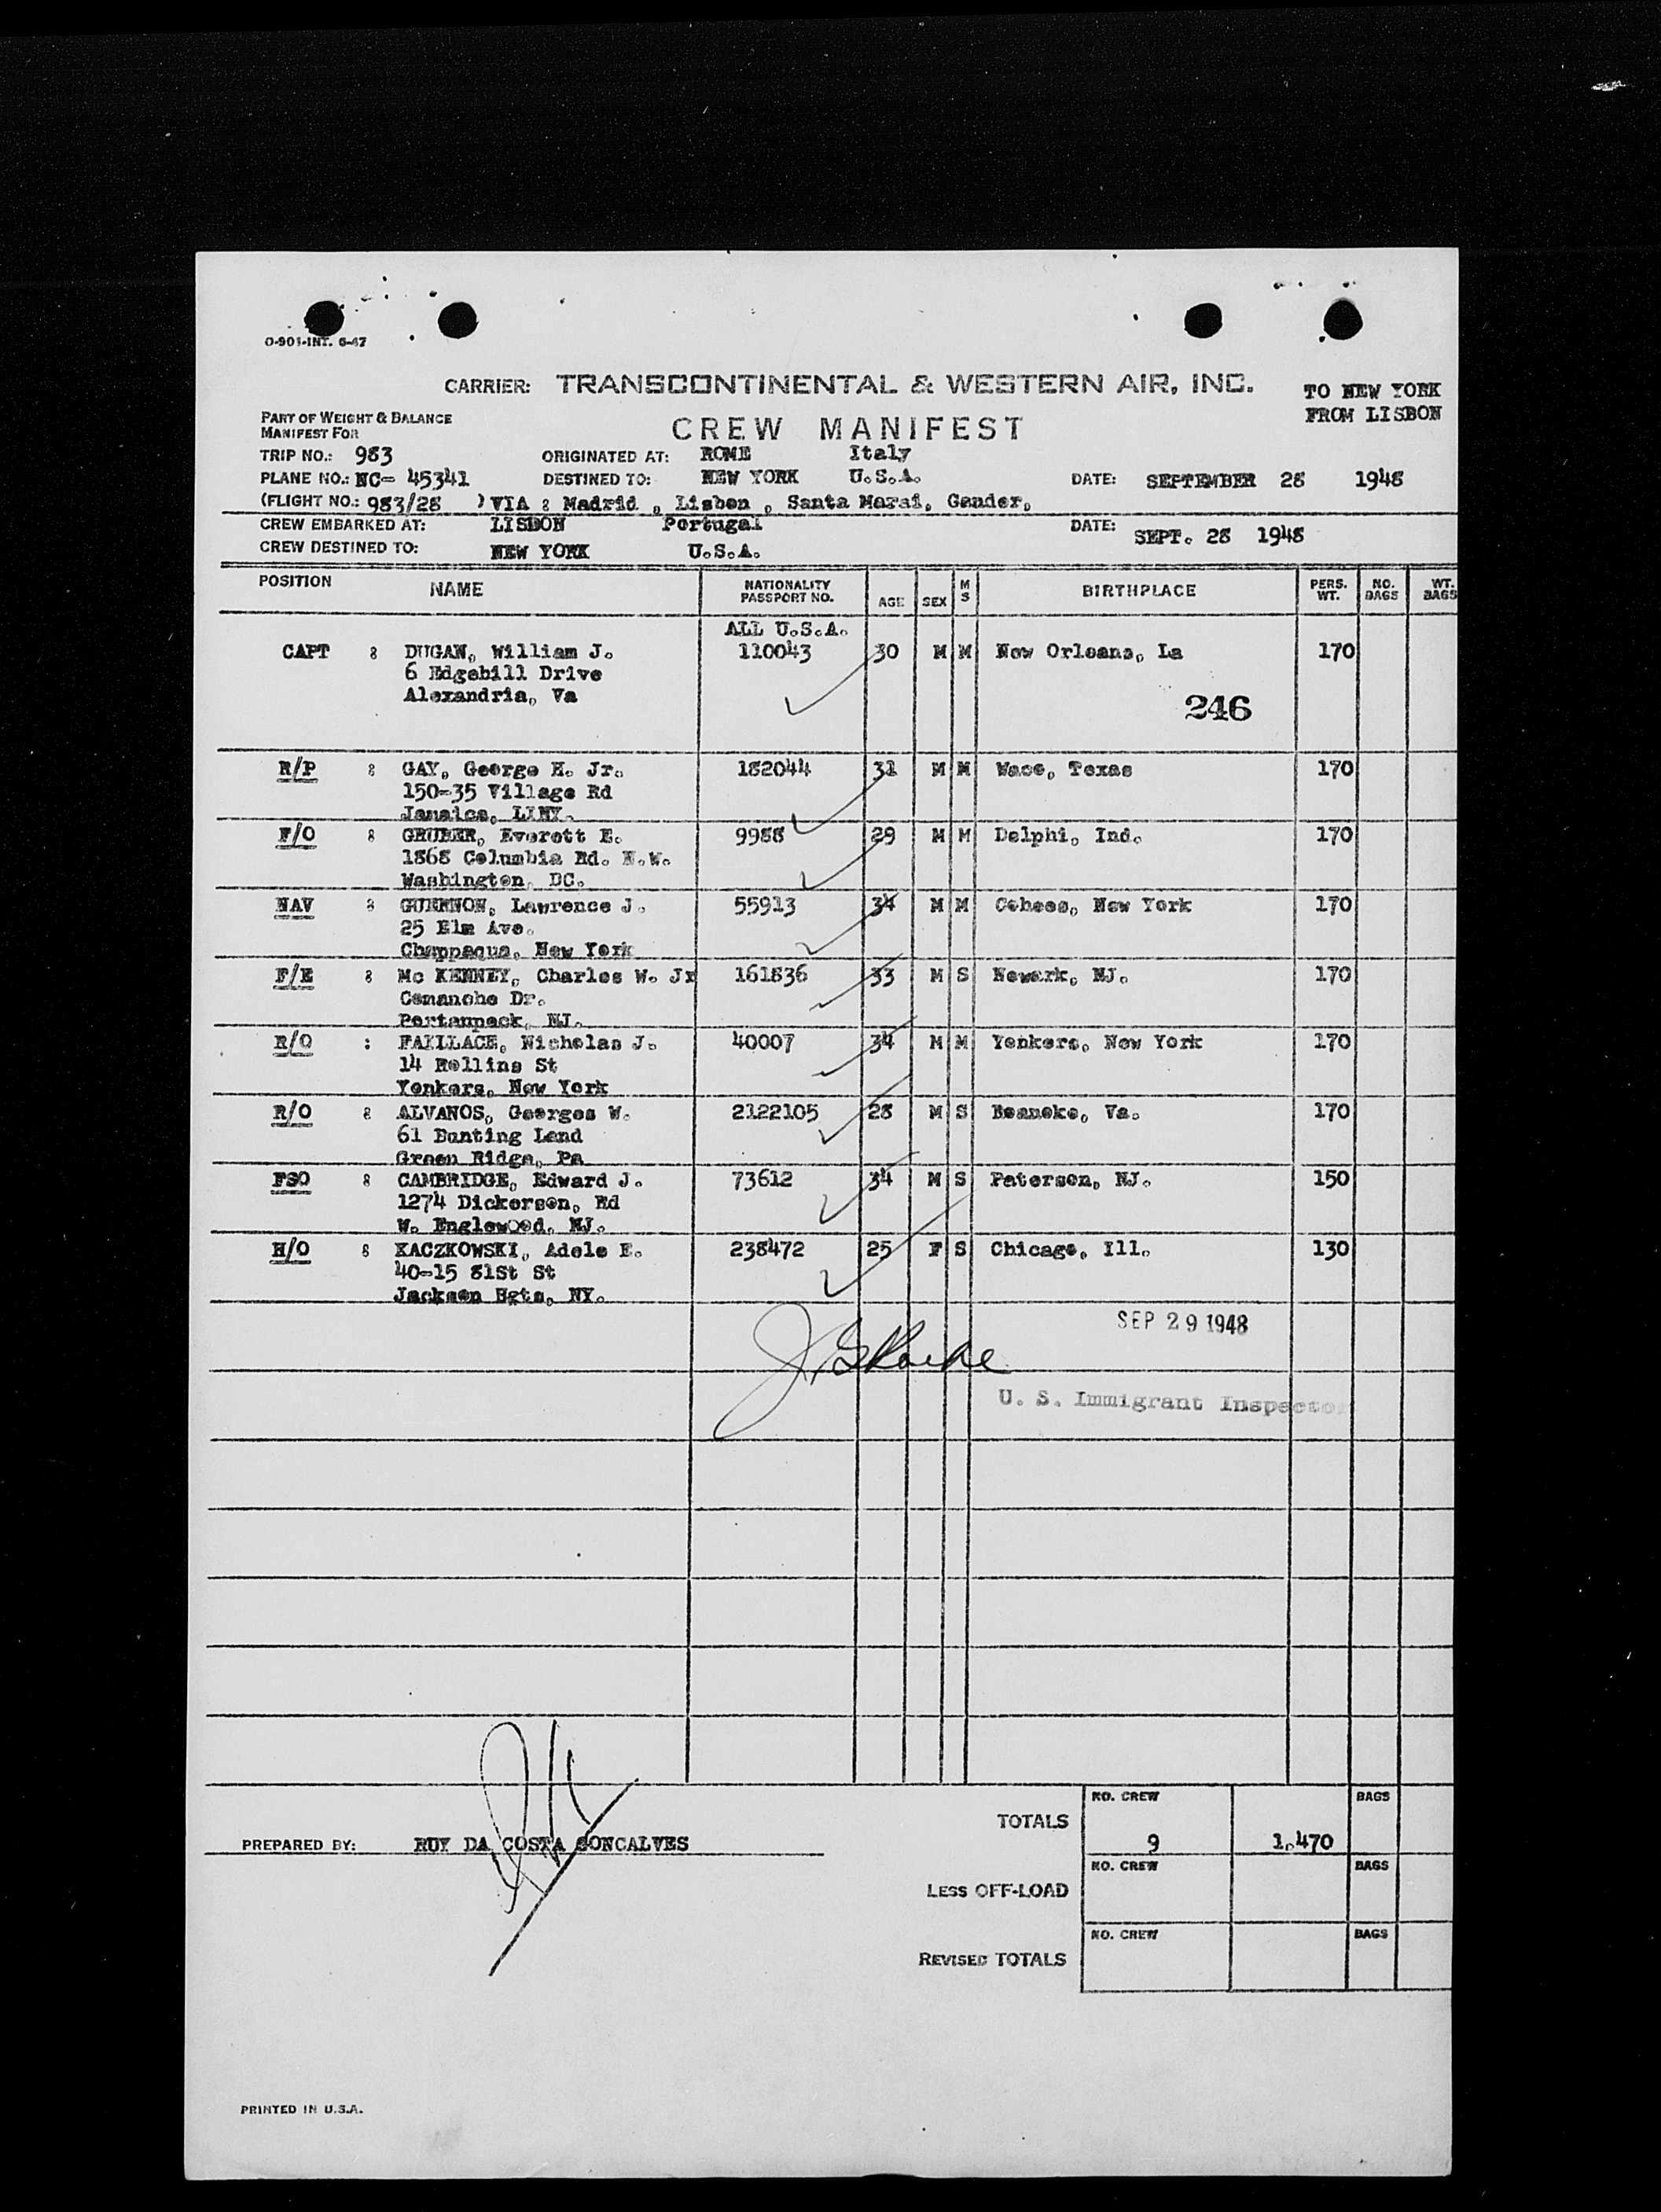 O-901-INT. 6-47
CARRIER: TRANSCONTINENTAL & WESTERN AIR, INC.
TO NEW YORK
FROM LISBON
PART OF WEIGHT & BALANCE
MANIFEST FOR
CREW MANIFEST
TRIP NO.: 983 ORIGINATED AT: ROME Italy
PLANE NO.: NC- 45341 DESTINED TO: NEW YORK U.S.A. DATE: SEPTEMBER 28 1948
(FLIGHT NO.: 983/28 ) VIA : Madrid , Lisbon , Santa Marai, Gander,
CREW EMBARKED AT: LISBON Portugal DATE: SEPT. 28 1948
CREW DESTINED TO: NEW YORK U.S.A.
POSITION NAME NATIONALITY PASSPORT NO. AGE SEX M S BIRTHPLACE PERS. WT. NO. BAGS WT. BAGS
ALL U.S.A.
CAPT : DUGAN, William J. 110043 30 M M New Orleans, La 170
6 Edgehill Drive
Alexandria, Va
246
R/P : GAY, George H. Jr. 182044 31 M M Waco, Texas 170
150-35 Village Rd
Jamaica, LINY.
F/O : GRUBER, Everett E. 9988 29 M M Delphi, Ind. 170
1868 Columbia Rd. N.W.
Washington, DC.
NAV : GUERNON, Lawrence J. 55913 34 M M Cohoes, New York 170
25 Elm Ave.
Chappaqua, New York
F/E : Mc KENNEY, Charles W. Jr 161836 33 M S Newark, NJ. 170
Comanche Dr.
Portaupack, NJ.
R/O : FAILLACE, Nicholas J. 40007 34 M M Yonkers, New York 170
14 Rollins St
Yonkers, New York
R/O : ALVANOS, Georges W. 2122105 28 M S Roanoke, Va. 170
61 Bunting Land
Green Ridge, Pa
FSO : CAMBRIDGE, Edward J. 73612 34 M S Paterson, NJ. 150
1274 Dickerson, Rd
W. Englewood, NJ.
H/O : KACZKOWSKI, Adele E. 238472 25 F S Chicago, Ill. 130
40-15 81St St
Jackson Hgts, NY.
SEP 29 1948
U. S. Immigrant Inspector
TOTALS NO. CREW 9 1,470 BAGS
PREPARED BY: RUY DA COSTA GONCALVES
LESS OFF-LOAD NO. CREW BAGS
REVISED TOTALS NO. CREW BAGS
PRINTED IN U.S.A.